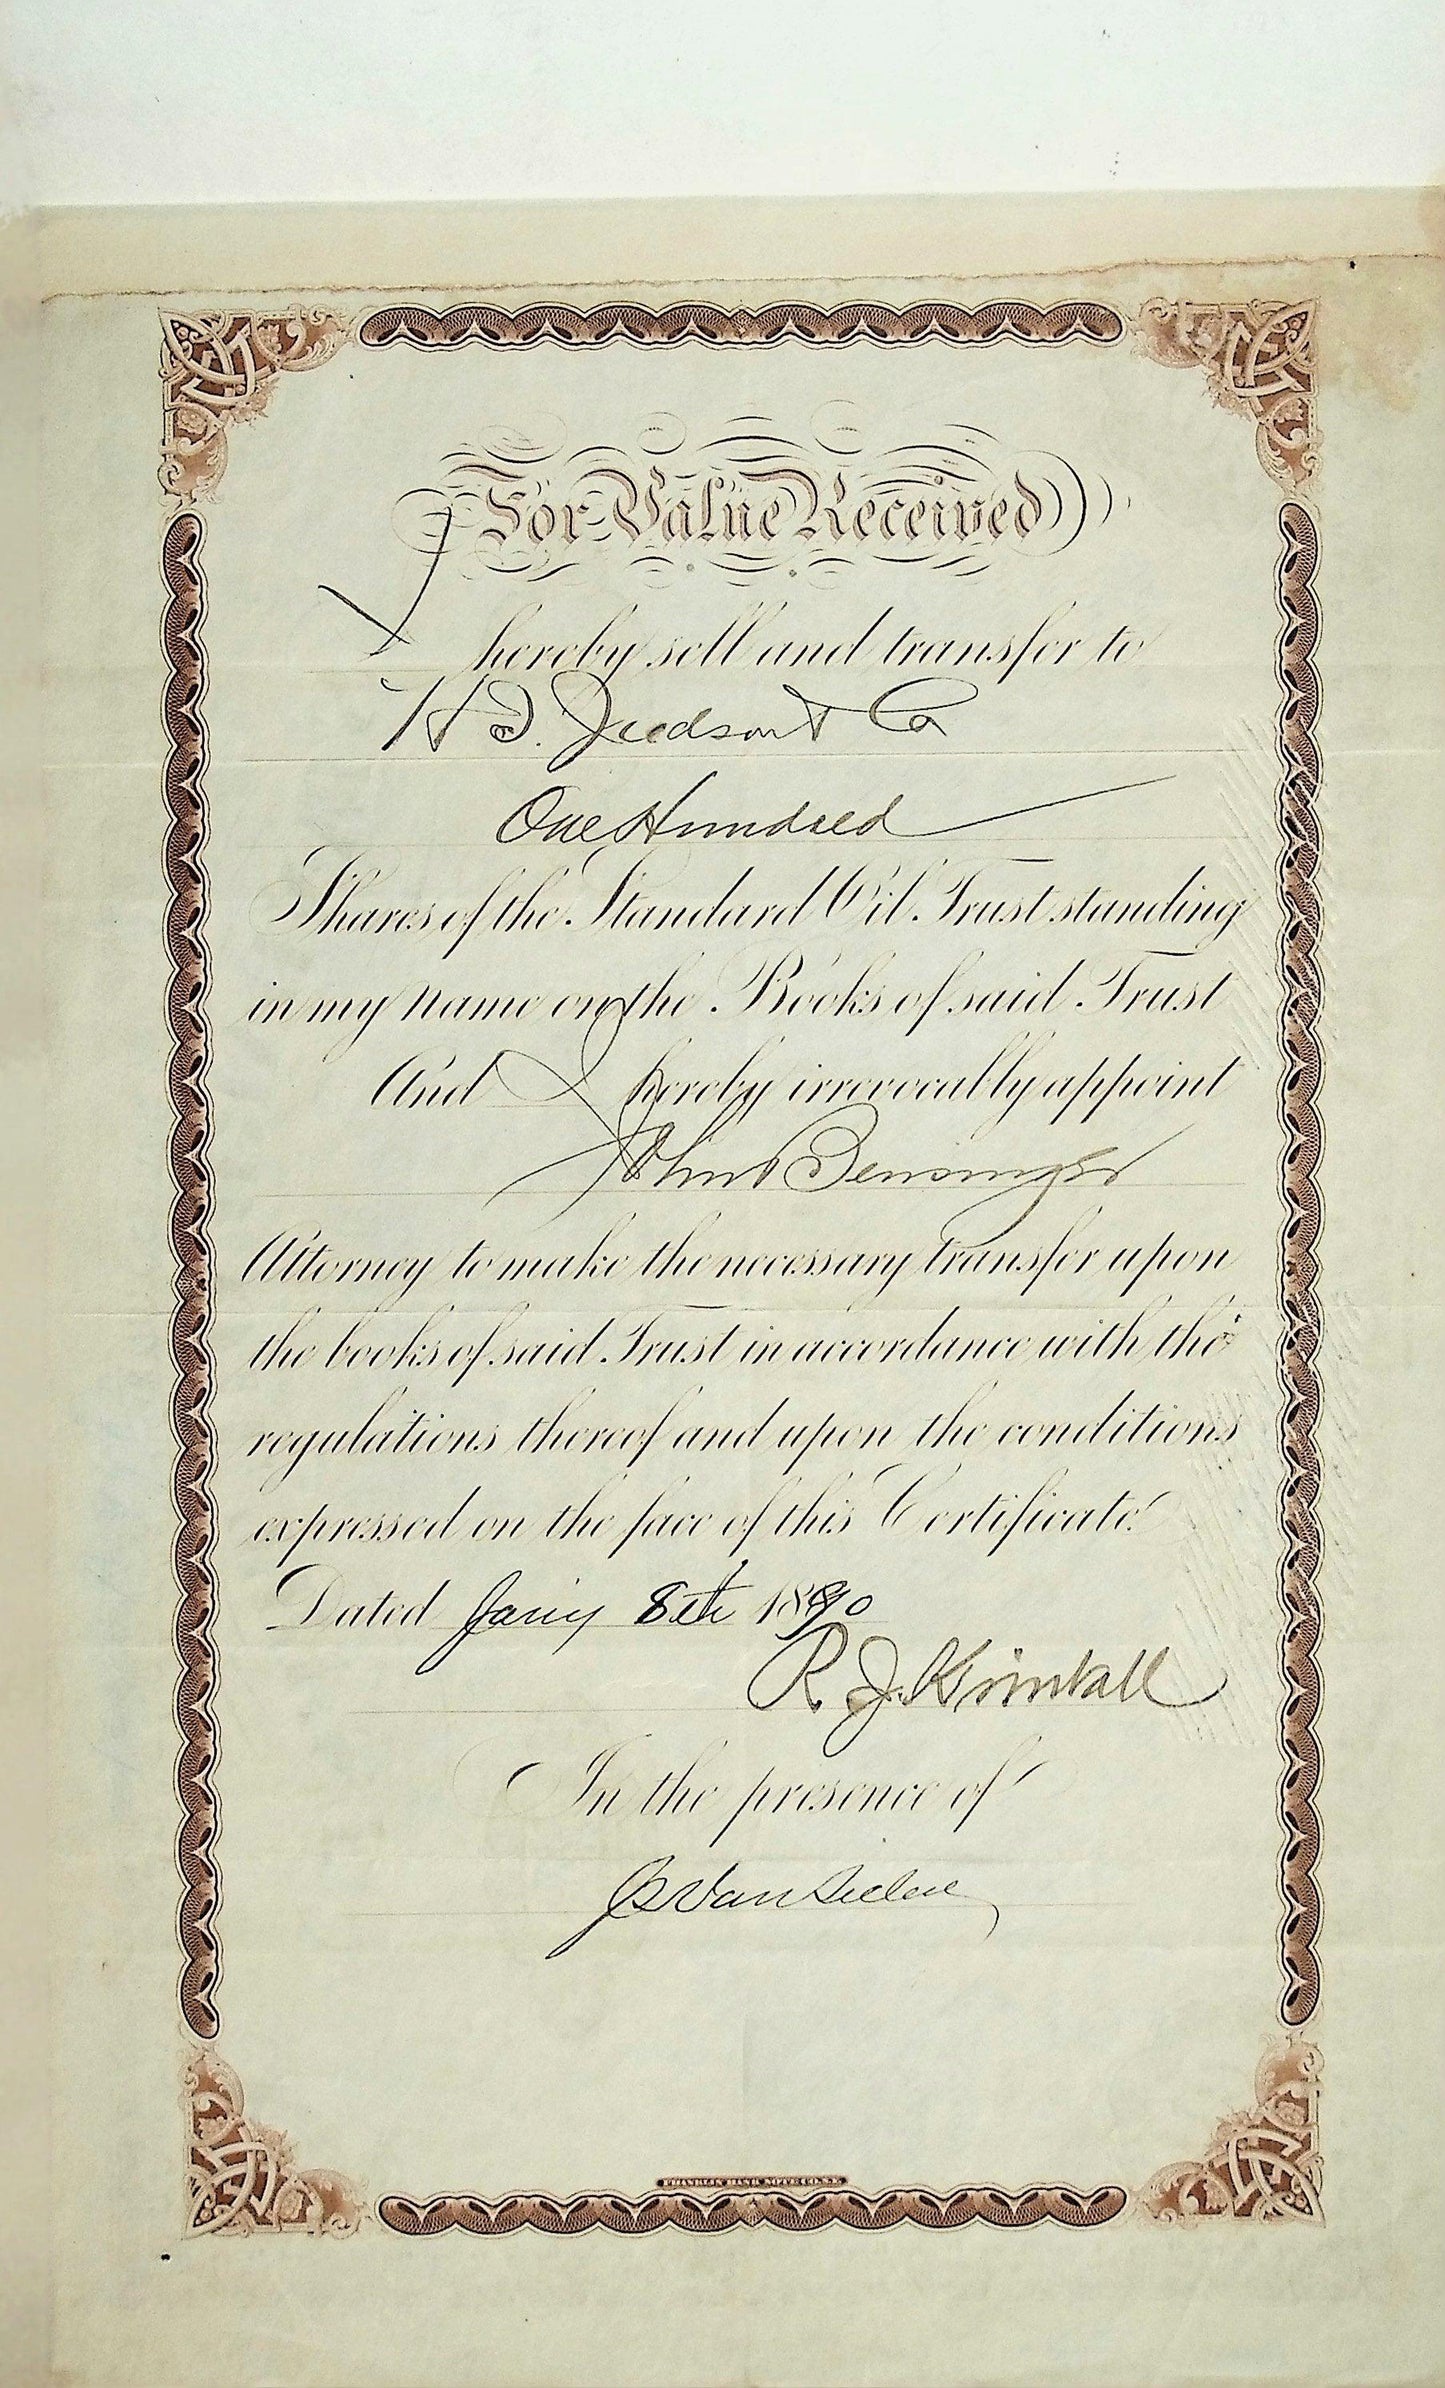 For Value Received
I hereby sell and transfer to
H I. Judson & Co
One Hundred
Shares of the Standard Oil Trust standing
in my name on the Books of said Trust
And I hereby irrevocably appoint
John Bensinger
Attorney to make the necessary transfer upon
the books of said Trust in accordance with the
regulations thereof and upon the conditions
expressed on the face of this Certificate.
Dated Jany 8th 1890
R. J. Kimball
In the presence of
Van
FRANKLIN BANK NOTE CO. N.Y.